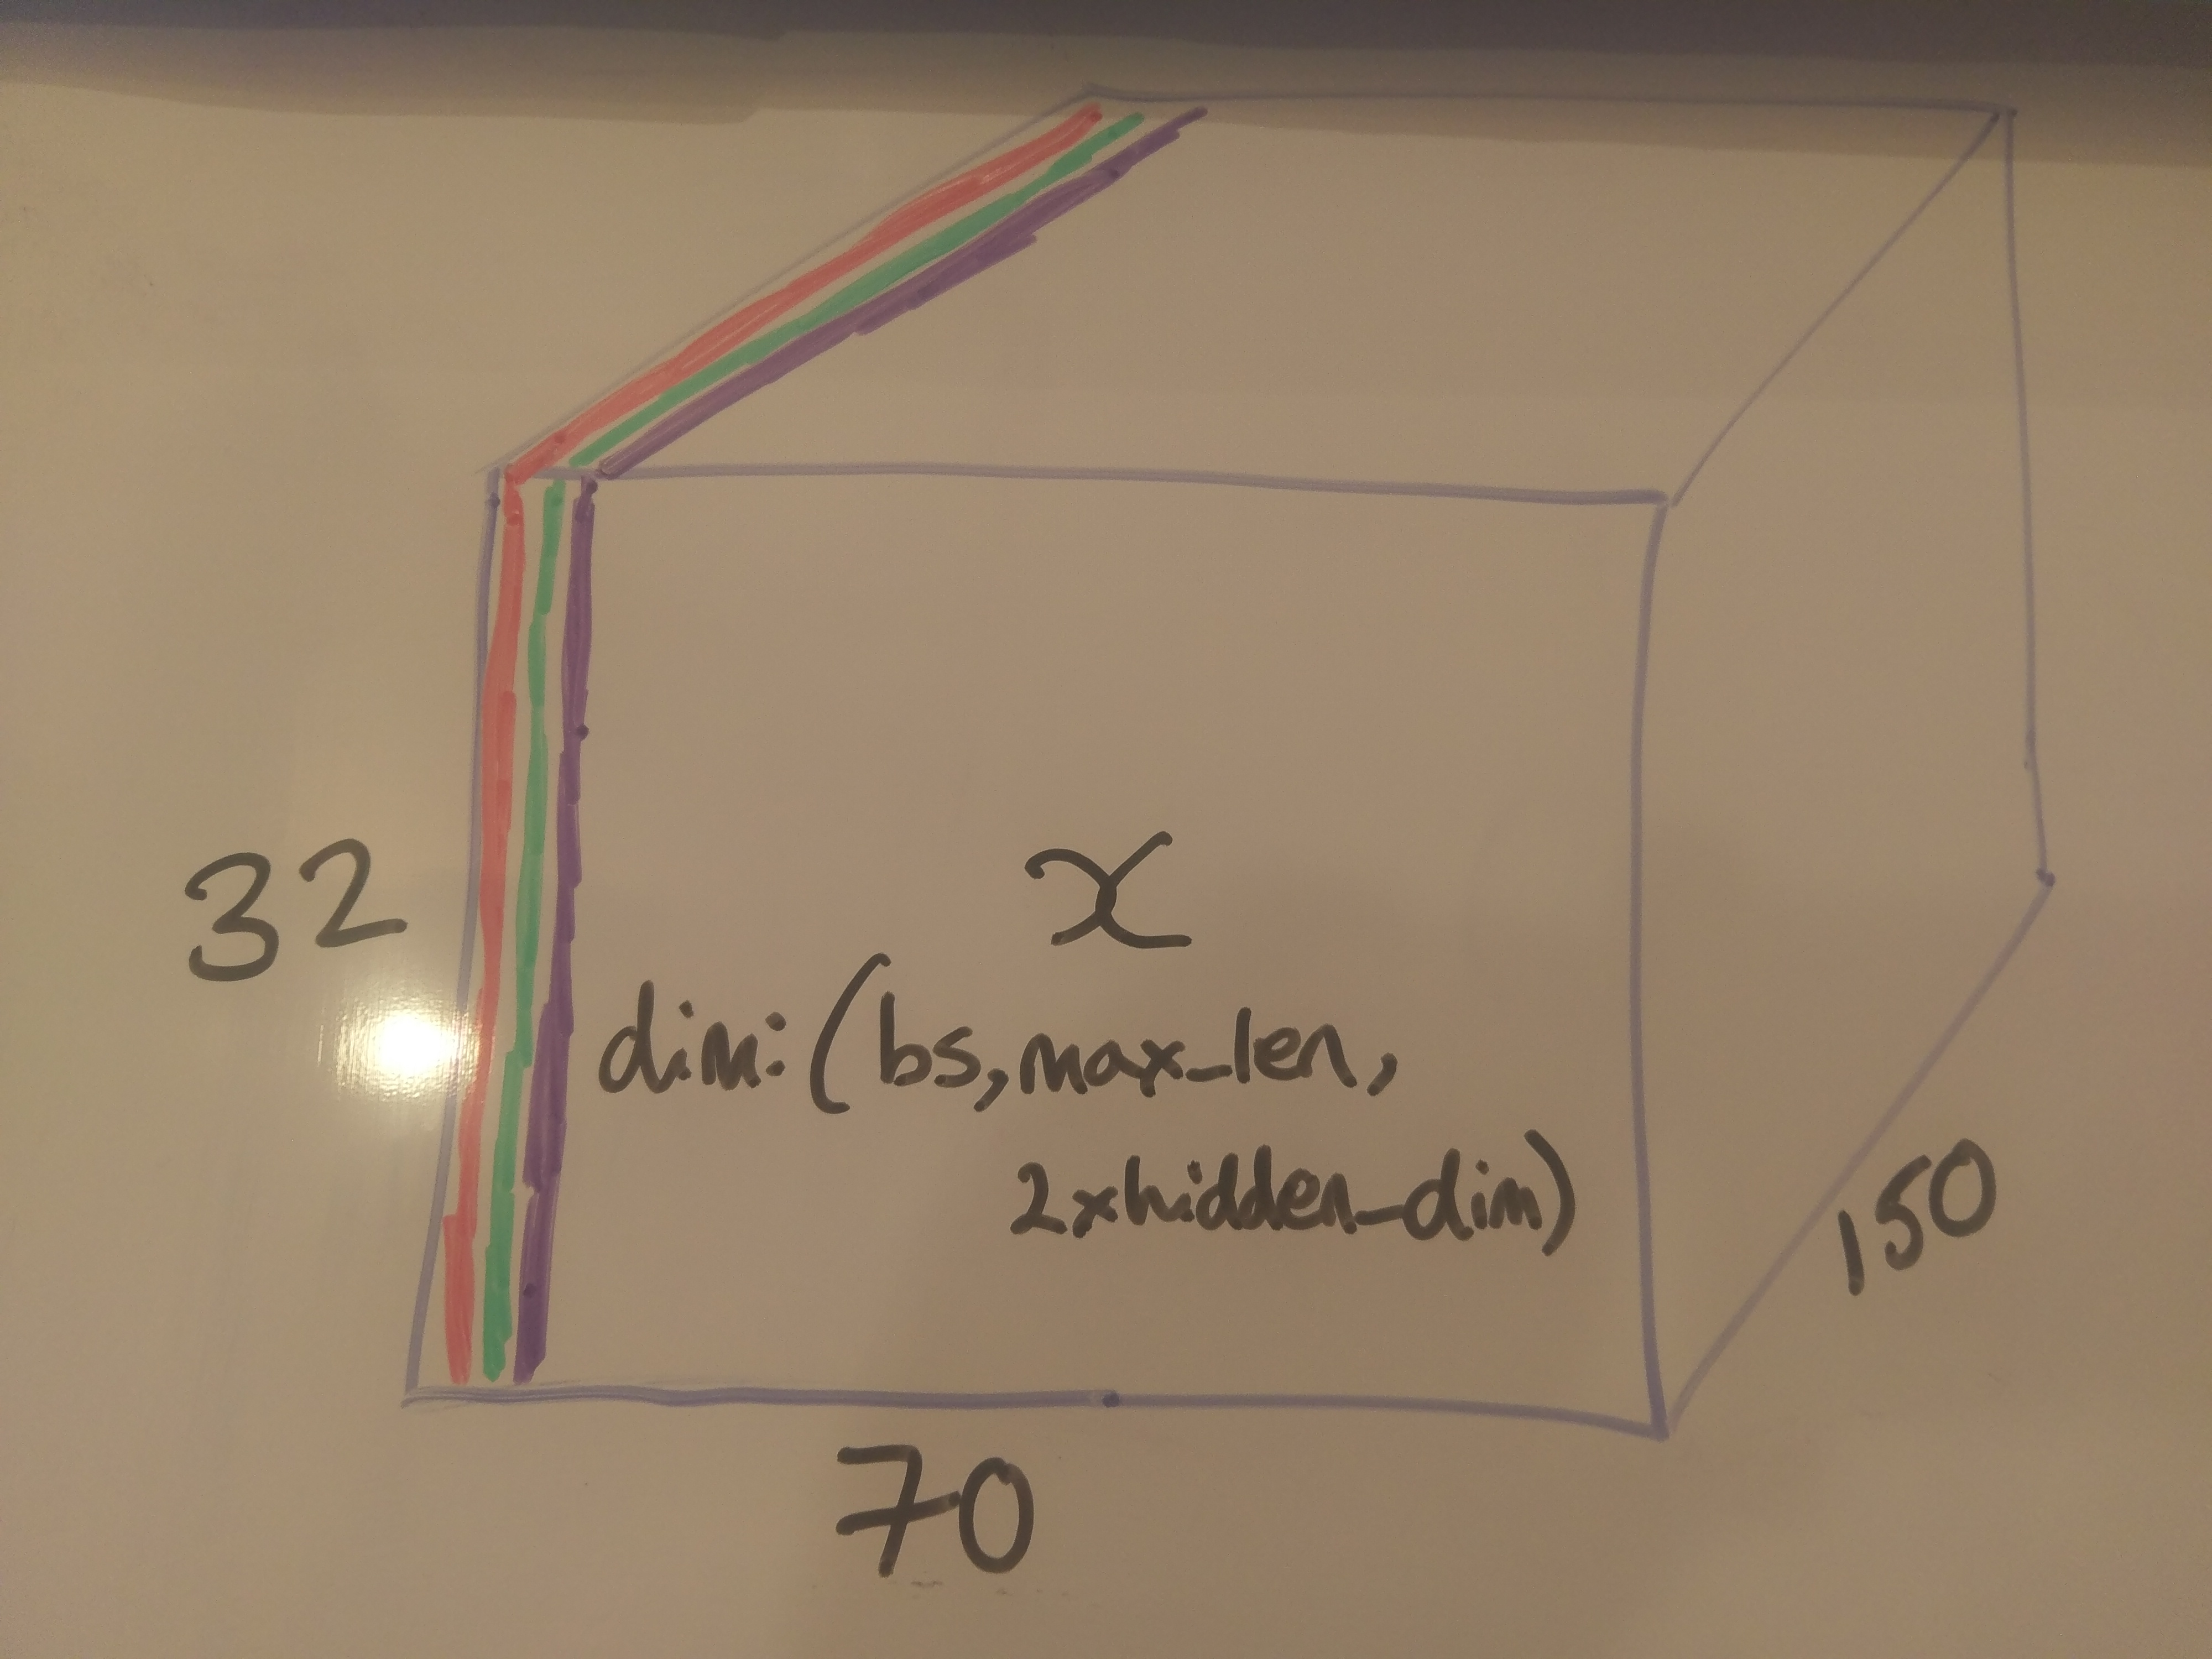 32
x
dim: (bs, max_len,
2xhidden_dim)
150
70